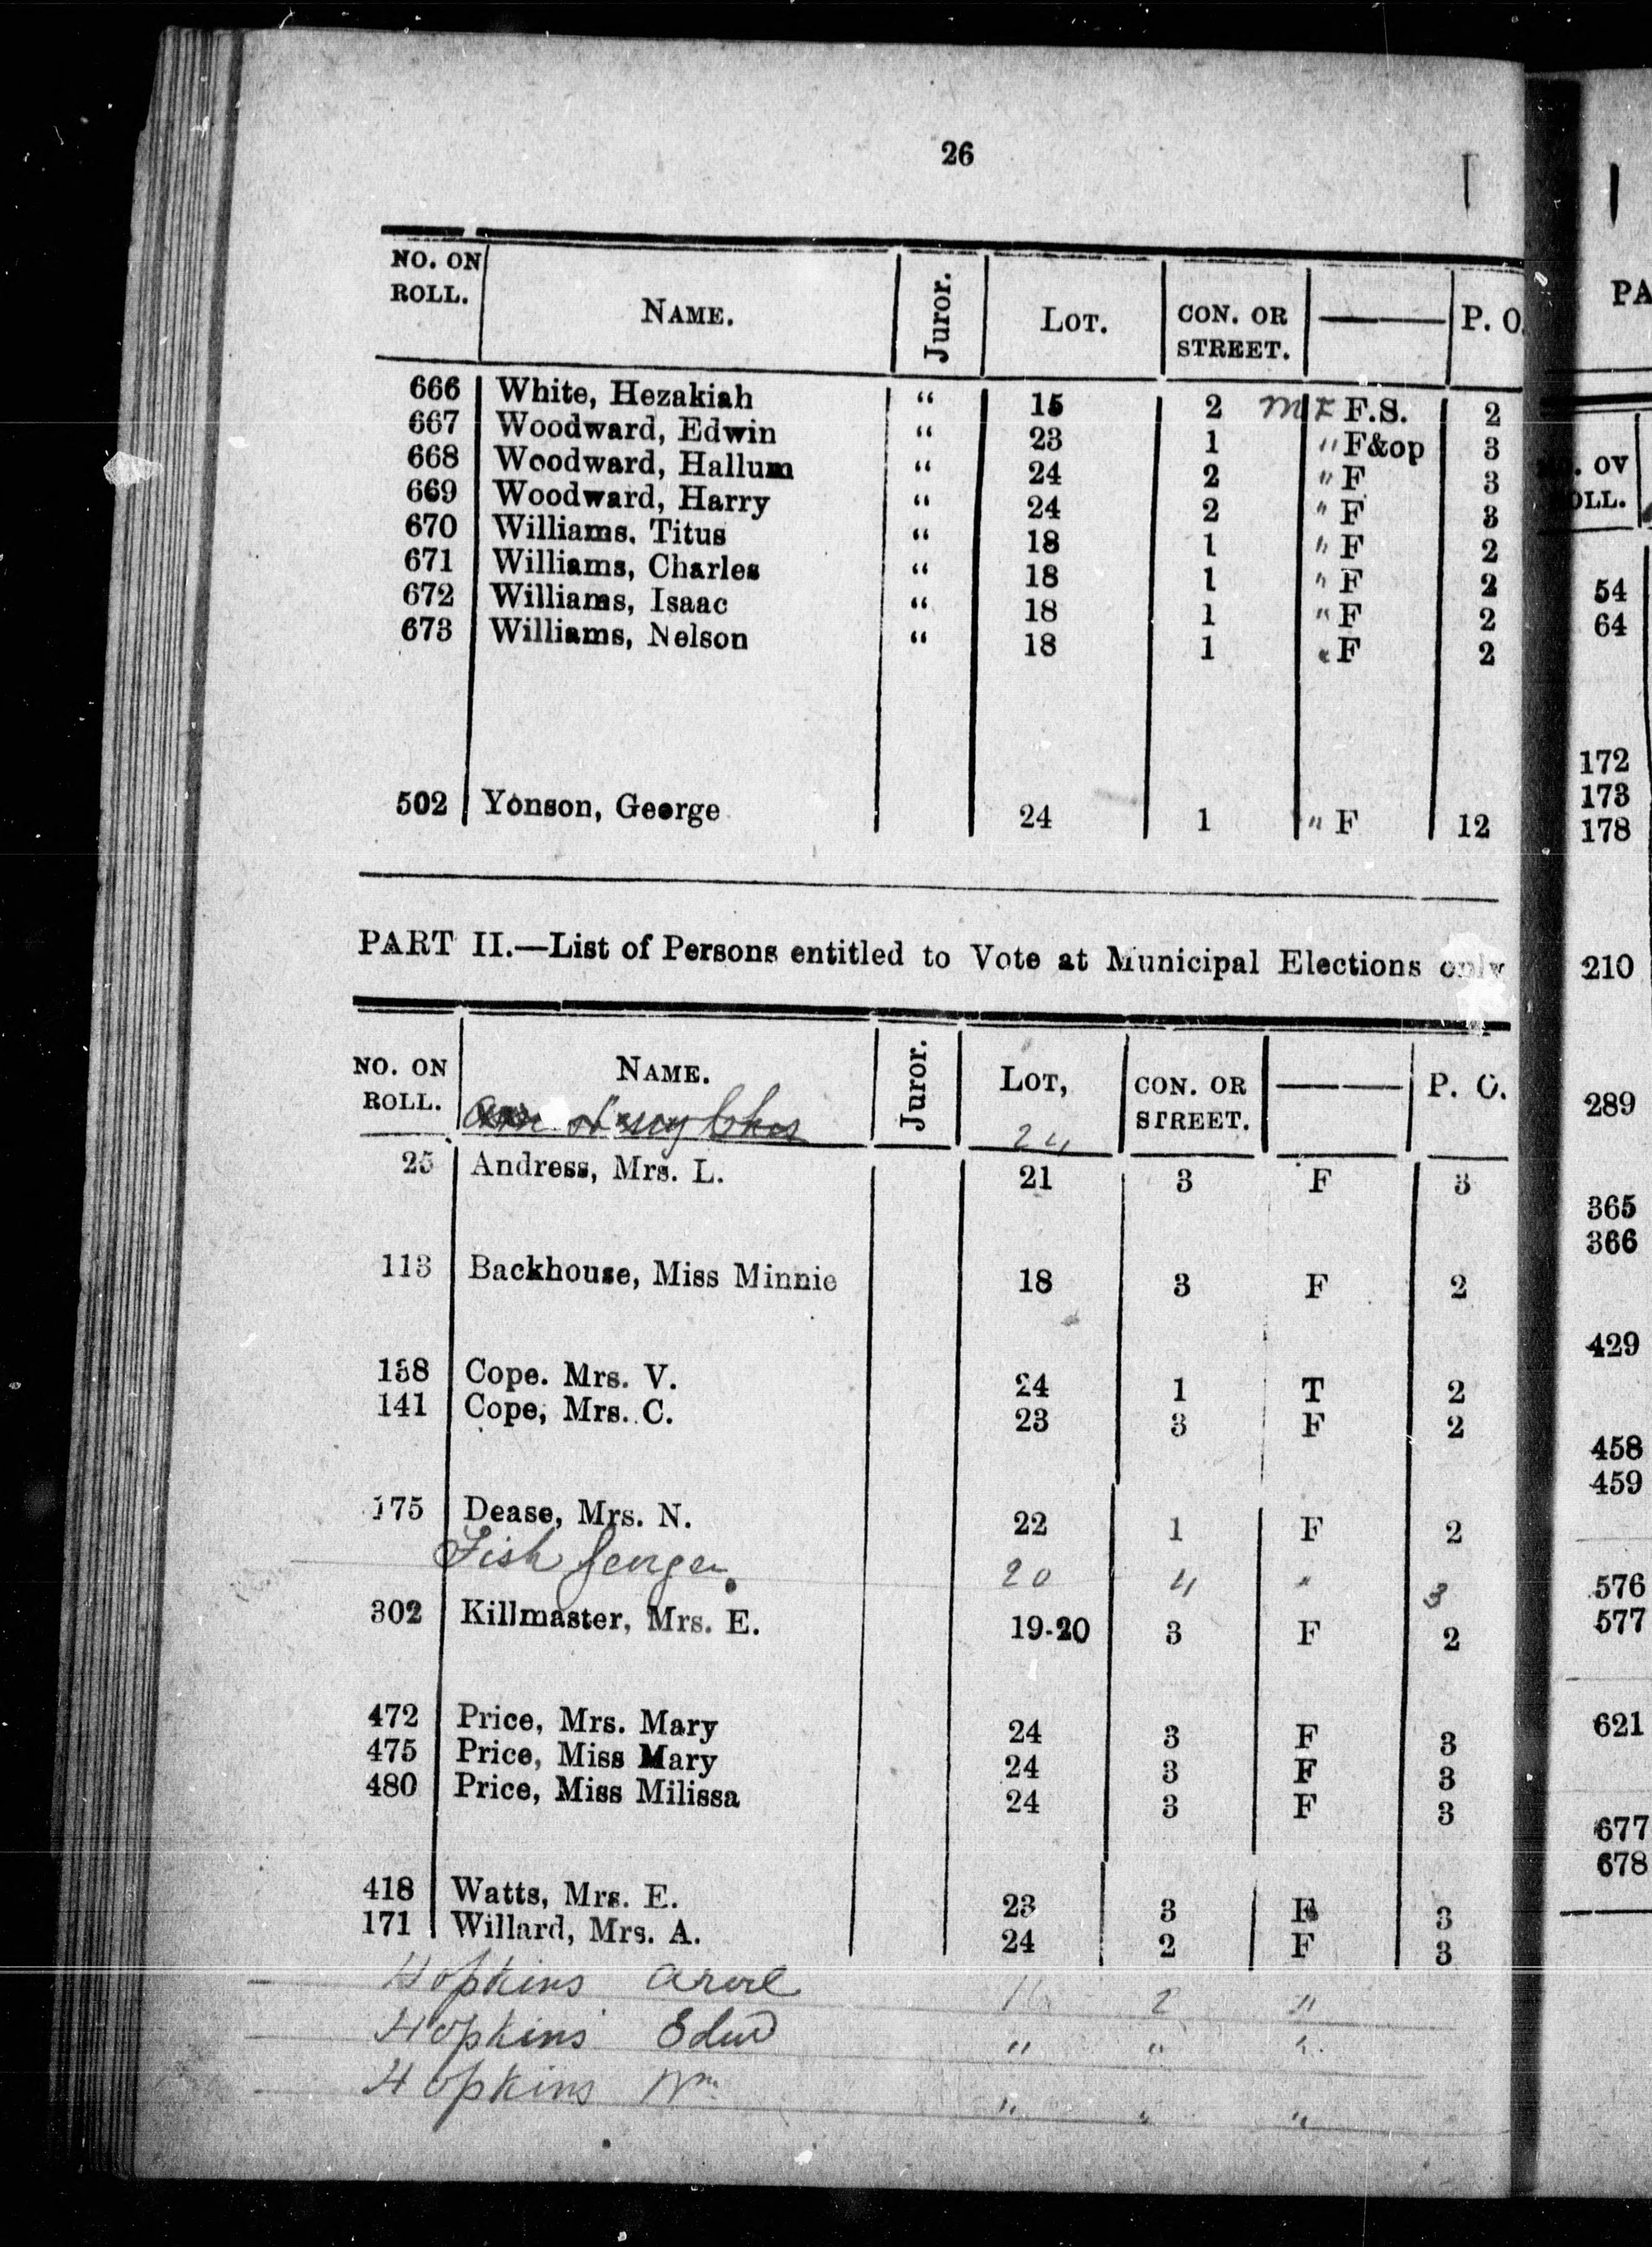 26
NO. ON ROLL. NAME. Juror. LOT. CON. OR STREET. P. O.
666 White, Hezakiah “ 15 2 F.S. 2
667 Woodward, Edwin “ 23 1 " F&op 3
668 Woodward, Hallum “ 24 2 " F 3
669 Woodward, Harry “ 24 2 " F 3
670 Williams. Titus “ 18 1 " F 2
671 Williams, Charles “ 18 1 " F 2
672 Williams, Isaac “ 18 1 " F 2
673 Williams, Nelson “ 18 1 " F 2
502 Yonson, George 24 1 " F 12
PART II.—List of Persons entitled to Vote at Municipal Elections only
NO. ON ROLL. NAME. Juror. LOT, CON. OR STREET. P. O.
24
25 Andress, Mrs. L. 21 3 F 3
113 Backhouse, Miss Minnie 18 3 F 2
138 Cope. Mrs. V. 24 1 T 2
141 Cope, Mrs. C. 23 3 F 2
175 Dease, Mrs. N. 22 1 F 2
Fish George 20 4 " 3
302 Killmaster, Mrs. E. 19-20 3 F 2
472 Price, Mrs. Mary 24 3 F 3
475 Price, Miss Mary 24 3 F 3
480 Price, Miss Milissa 24 3 F 3
418 Watts, Mrs. E. 23 3 F 3
171 Willard, Mrs. A. 24 2 F 3
Hopkins 2 "
Hopkins Edwd " " "
Hopkins Wm " " "
PA
OLL.
54
64
172
173
178
210
289
365
366
429
458
459
576
577
621
677
678